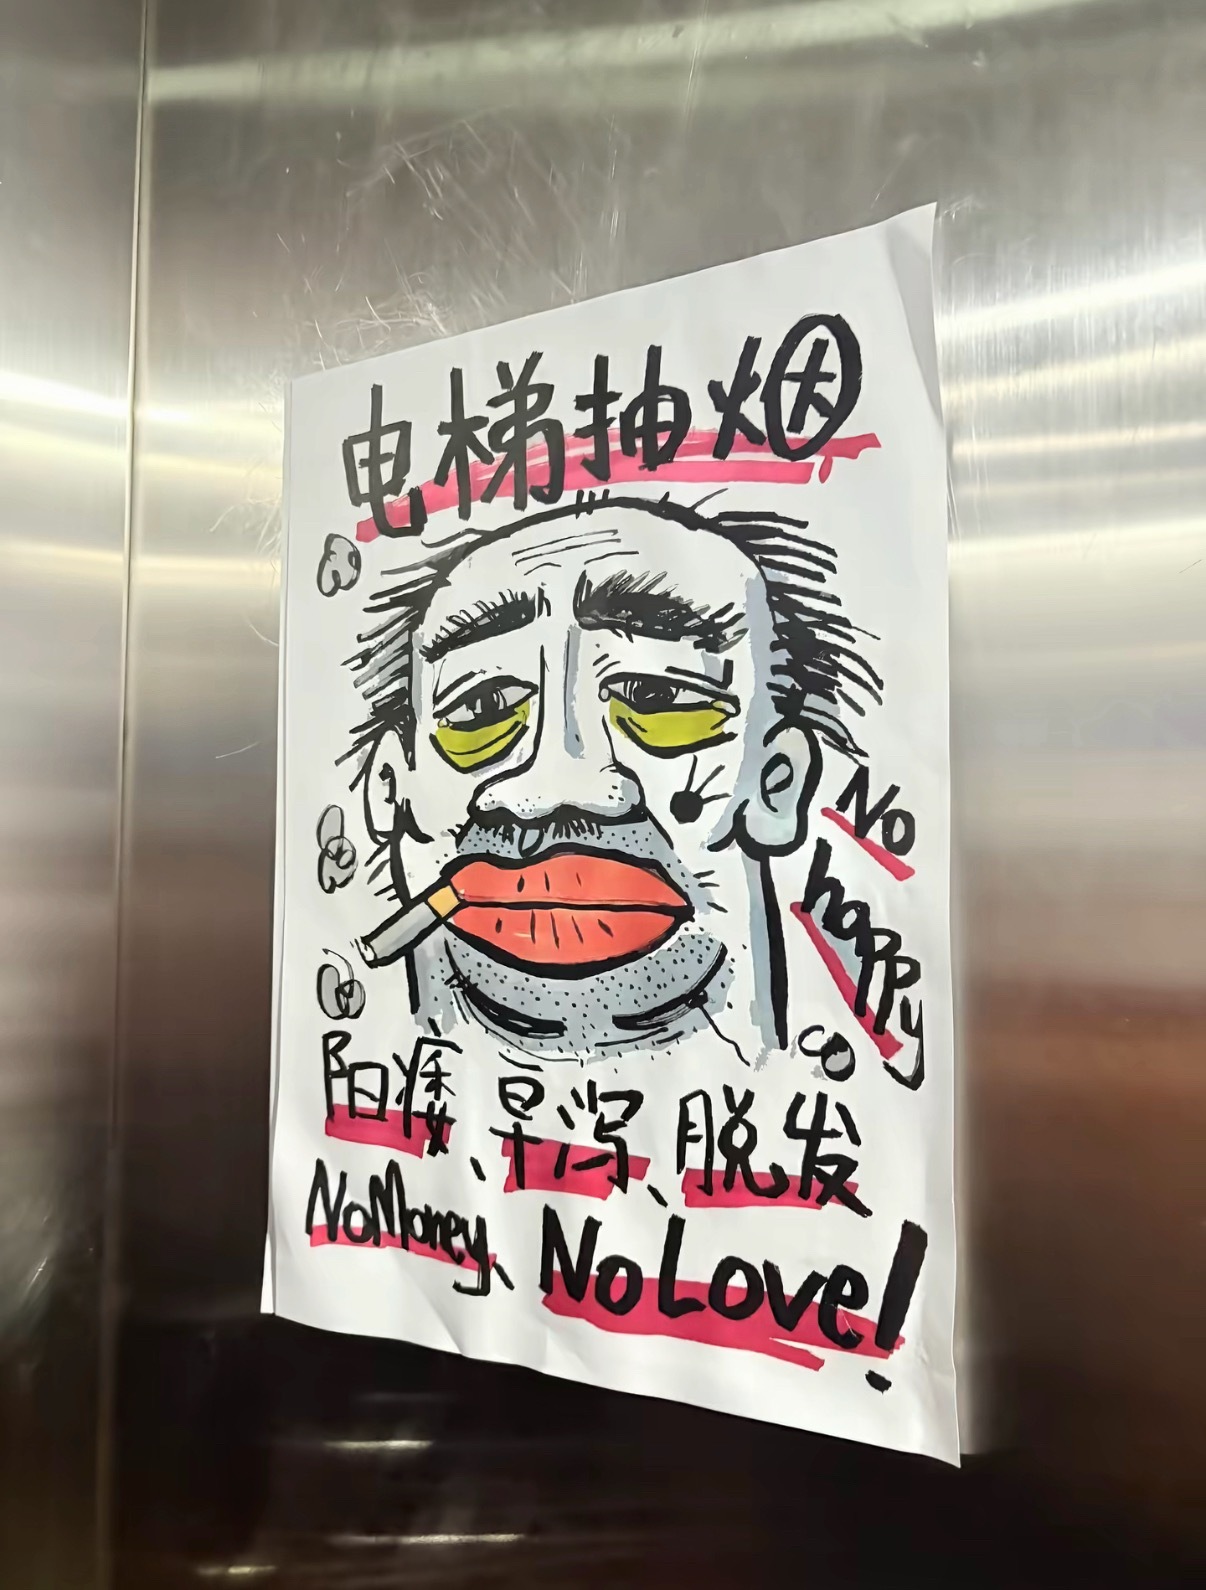 电梯抽烟
No
happy
阳痿、早泻、脱发
No Money、No Love!